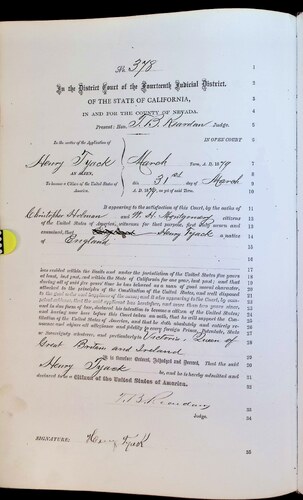 No. 378
In the District Court of the Fourteenth Judicial District,
OF THE STATE OF CALIFORNIA,
IN AND FOR THE COUNTY OF NEVADA.
Present: Hon. T. B. Reardan Judge.
In the matter of the Application of
IN OPEN COURT
Henry Tyack
AN ALIEN,
To become a Citizen of the United States of America.
March Term, A. D. 1879
this 31st day of March
A. D. 1879, as yet of said Term.
It appearing to the satisfaction of this Court, by the oaths of
Christopher Holman and W. H. Montgomery citizens
of the United States of America, witnesses for that purpose, first duly sworn and
examined, that Henry Tyack a native
of England
has resided within the limits and under the jurisdiction of the United States five years
at least, last past, and within the State of California for one year, last past; and that
during all of said five years' time he has behaved as a man of good moral character,
attached to the principles of the Constitution of the United States, and well disposed
to the good order and happiness of the same; and it also appearing to the Court, by
declared his intention to become a citizen of the United States;
and he having now here before this Court taken an oath, that he will support the Con-
stitution of the United States of America, and that he doth absolutely and entirely re-
nounce and abjure all allegiance and fidelity to every foreign Prince, Potentate, State
or Sovereignty whatever, and particularly to Victoria - Queen of
Great Britain and Ireland
It is therefore Ordered, Adjudged and Decreed, That the said
Henry Tyack be, and he is hereby admitted and
declared to be a Citizen of the United States of America.
T. B. Reardan
Judge.
SIGNATURE: Henry Tyack